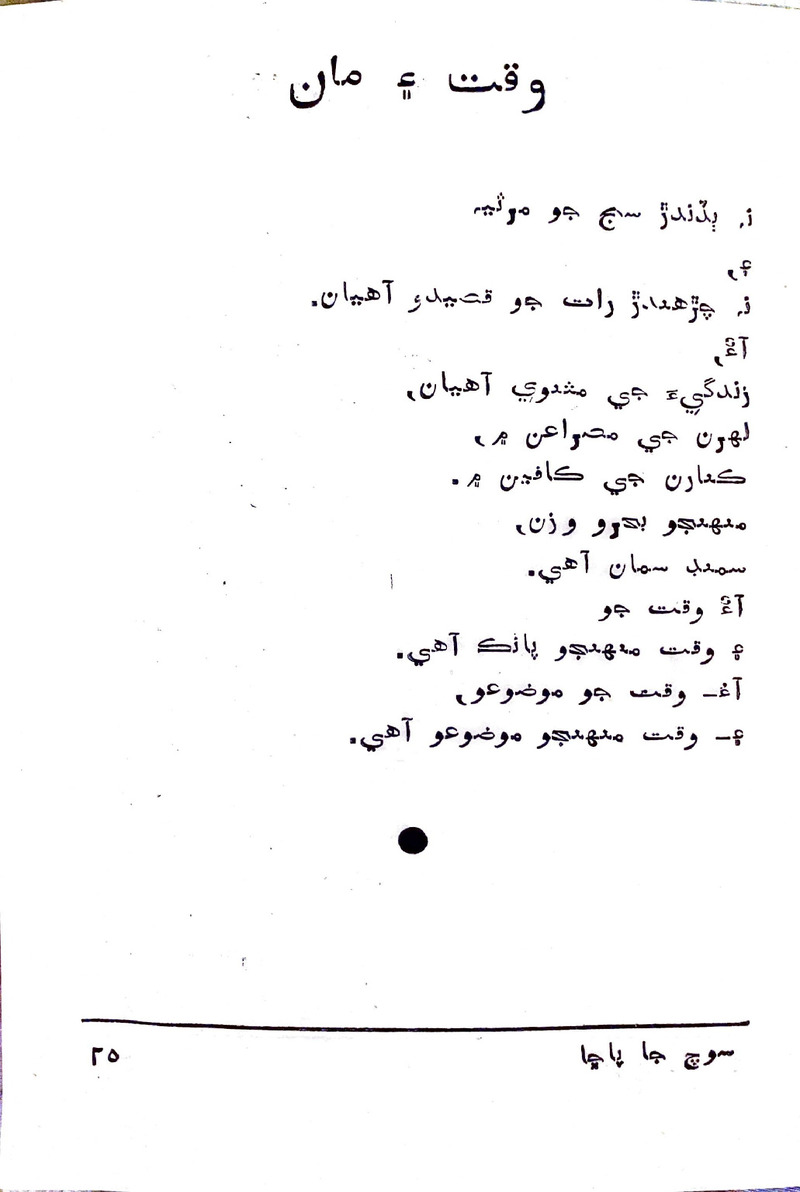 وقت ۽ مان
نہ ٻڏندڙ سج جو مرثيہ
۽،
نہ چڙهندڙ رات جو قصيدو آهيان.
آئون،
زندگيءَ جي مثنوي آهيان،
لهرن جي مصراعن ۾،
ڪنارن جي ڪافين ۾.
منهنجو بحرو وزن،
سمنڊ سمان آهي.
آئون وقت جو
۽ وقت منهنجو پاڻڪ آهي.
آئون– وقت جو موضوعو،
۽– وقت منهنجو موضوعو آهي.
سوچ جا پاڇا
۲۵